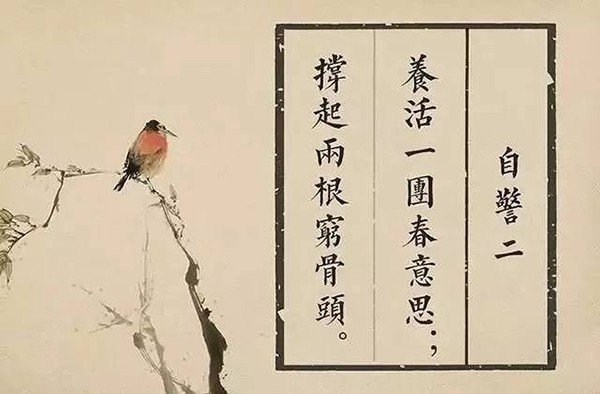 自警二
養活一團春意思；
撐起兩根窮骨頭。